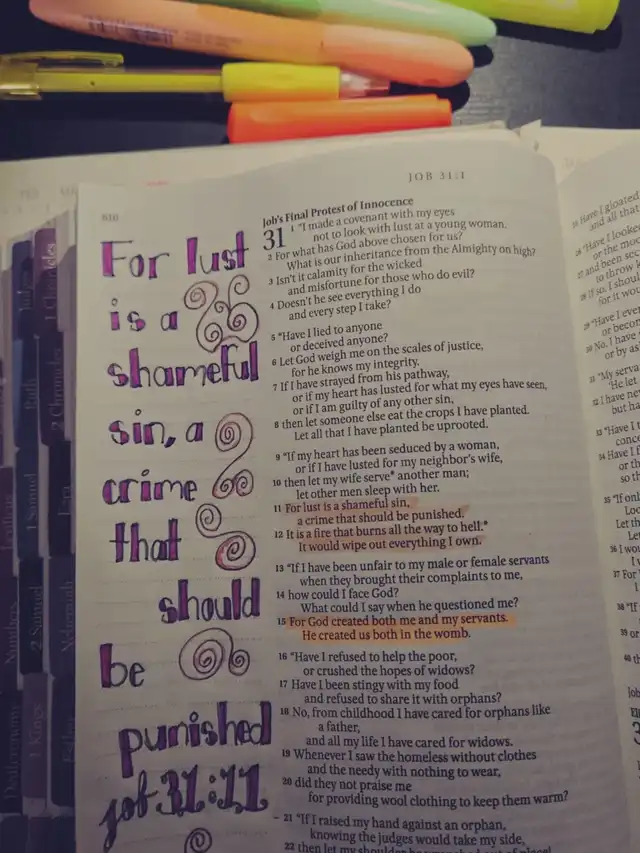 JOB 31:1
810
For lust
is a
shameful
sin, a
crime
that
should
be
punished
job 31:11
Job's Final Protest of Innocence
31 1 "I made a covenant with my eyes
not to look with lust at a young woman.
2 For what has God above chosen for us?
What is our inheritance from the Almighty on high?
3 Isn't it calamity for the wicked
and misfortune for those who do evil?
4 Doesn't he see everything I do
and every step I take?
5 "Have I lied to anyone
or deceived anyone?
6 Let God weigh me on the scales of justice,
for he knows my integrity.
7 If I have strayed from his pathway,
or if my heart has lusted for what my eyes have seen,
or if I am guilty of any other sin,
8 then let someone else eat the crops I have planted.
Let all that I have planted be uprooted.
9 "If my heart has been seduced by a woman,
or if I have lusted for my neighbor's wife,
10 then let my wife serve* another man;
let other men sleep with her.
11 For lust is a shameful sin,
a crime that should be punished.
12 It is a fire that burns all the way to hell.*
It would wipe out everything I own.
13 "If I have been unfair to my male or female servants
when they brought their complaints to me,
14 how could I face God?
What could I say when he questioned me?
15 For God created both me and my servants.
He created us both in the womb.
16 "Have I refused to help the poor,
or crushed the hopes of widows?
17 Have I been stingy with my food
and refused to share it with orphans?
18 No, from childhood I have cared for orphans like
a father,
and all my life I have cared for widows.
19 Whenever I saw the homeless without clothes
and the needy with nothing to wear,
20 did they not praise me
for providing wool clothing to keep them warm?
21 "If I raised my hand against an orphan,
knowing the judges would take my side,
22 then let my shoulder be
25 Have I gloated
and all that
26 "Have I looked
or the moo
27 and been sec
to throw k
28 If so, I shou
for it wou
29 "Have I ever
or becom
30 No, I have
or by as
31 "My serva
'He let
32 I have ne
but ha
33 "Have I t
conce
34 Have I f
or th
so th
35 "If onl
Loo
Let th
Let
36 I wou
I v
37 For
38 "If
39 or
40 th
Job
1 Chronicles
2 Chronicles
Ezra
Nehemiah
Judges
Ruth
1 Samuel
2 Samuel
1 Kings
Leviticus
Numbers
Deuteronomy